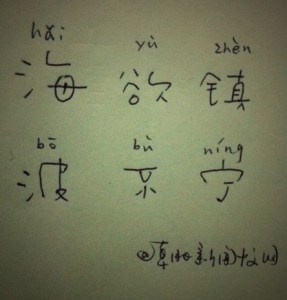 hǎi yù zhèn
海欲镇
bō bù níng
波不宁